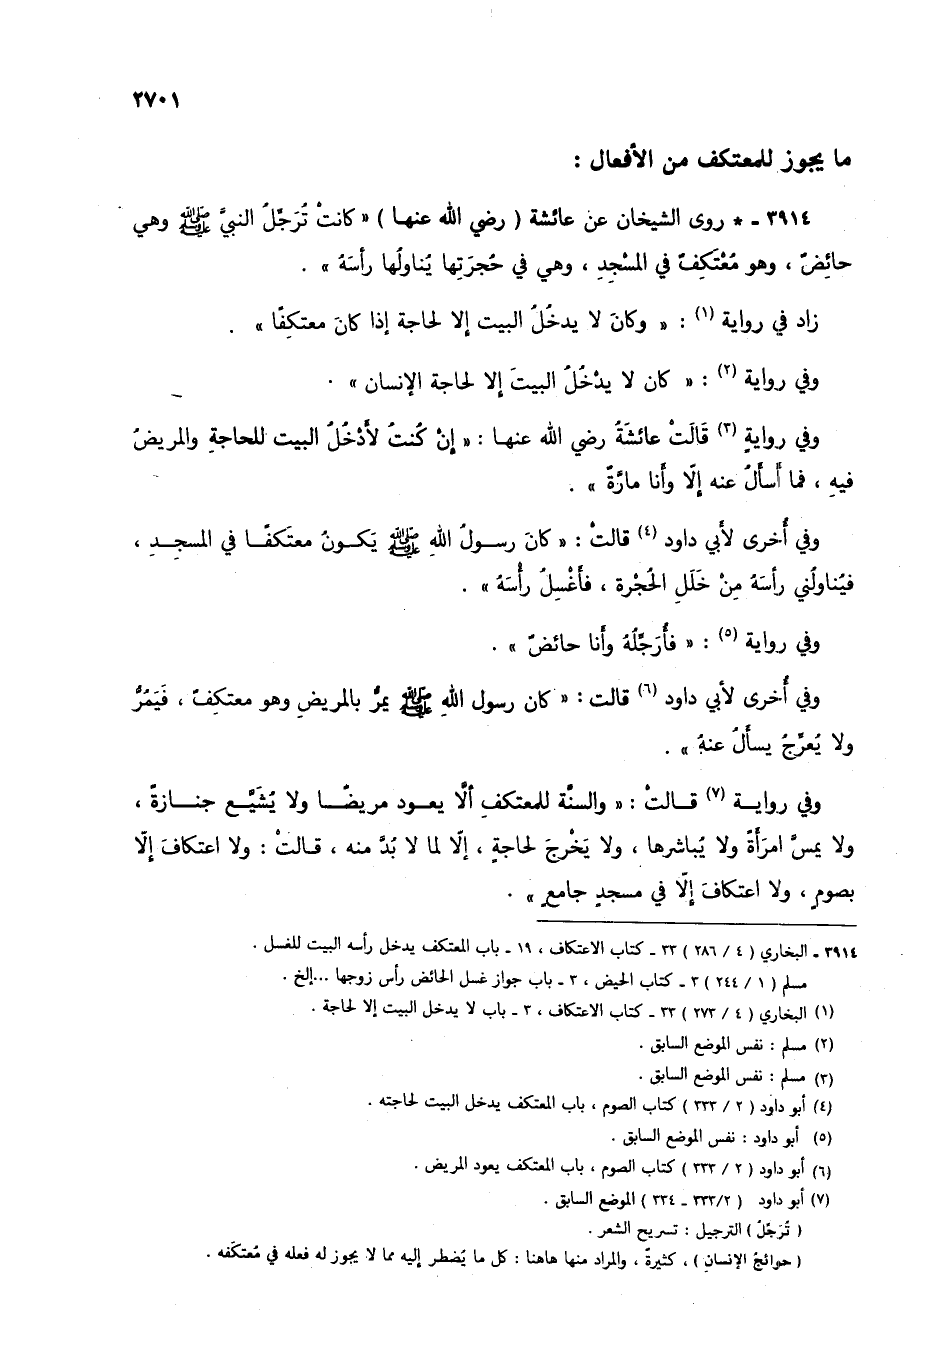 ٢٧٠١
ما يجوز للمعتكف من الأفعال :
٣٩١٤ ـ * روى الشيخان عن عائشة ( رضي الله عنهـا ) « كانتْ تُرَجِّلُ النبيَّ ﷺ وهي
حائِضٌ ، وهو مُعْتَكِفٌ في المسْجِدِ ، وهي في حُجرَتِها يُناولُها رأسَهُ » .
زاد في رواية (١) : « وكانَ لا يدخُلُ البيت إلا لحاجة إذا كانَ معتكفًا » .
وفي رواية (٢) : « كان لا يدْخُلُ البيتَ إلا لحاجة الإنسان » .
وفي روايةٍ (٣) قَالَتْ عائشَةُ رضي الله عنهـا : « إنْ كُنتُ لأَدْخُلُ البيت للحاجةِ والمريضُ
فيهِ ، فما أَسألُ عنه إلّا وأنا مارَّةٌ » .
وفي أُخرى لأبي داود (٤) قالتْ : « كانَ رسـولُ اللهِ ﷺ يَكـونُ معتَكفًـا في المسجـدِ ،
فيُناولُني رأسَهُ مِنْ خَلَلِ الحُجْرة ، فأَغْسِلُ رأْسَهُ » .
وفي رواية (٥) : « فأُرَجِّلُهُ وأَنا حائضٌ » .
وفي أُخرى لأبي داود (٦) قالت : « كان رسول اللهِ ﷺ يمرُّ بالمريضِ وهو معتكِفٌ ، فَيَمُرُّ
ولا يُعرِّجُ يسأَلُ عنهُ » .
وفي روايـة (٧) قـالتْ : « والسنَّة للمعتكفِ ألَّا يعود مريضًـا ولا يُشَيِّـع جنـازةً ،
ولا يمسَّ امرَأةً ولا يُباشرها ، ولا يَخْرجَ لحاجةٍ ، إلّا لما لا بُدَّ منه ، قـالتْ : ولا اعتكافَ إلَّا
بصومٍ ، ولا اعتكافَ إلّا في مسجدٍ جامعٍ » .
٣٩١٤ ـ البخاري ( ٤ / ٢٨٦ ) ٣٣ ـ كتاب الاعتكاف ، ١٩ ـ باب المعتكف يدخل رأسه البيت للغسل .
مسلم ( ١ / ٢٤٤ ) ٣ ـ كتاب الحيض ، ٣ ـ باب جواز غسل الحائض رأس زوجها ...إلخ .
(١) البخاري ( ٤ / ٢٧٣ ) ٣٣ ـ كتاب الاعتكاف ، ٣ ـ باب لا يدخل البيت إلا لحاجة .
(٢) مسلم : نفس الموضع السابق .
(٣) مسلم : نفس الموضع السابق .
(٤) أبو داود ( ٢ / ٣٣٣ ) كتاب الصوم ، باب المعتكف يدخل البيت لحاجته .
(٥) أبو داود : نفس الموضع السابق .
(٦) أبو داود ( ٢ / ٣٣٣ ) كتاب الصوم ، باب المعتكف يعود المريض .
(٧) أبو داود ( ٣٣٣/٢ ـ ٣٣٤ ) الموضع السابق .
( تُرَجِّلُ ) الترجيل : تسريح الشعر .
( حوائجُ الإنسانِ ) ، كثيرةٌ ، والمراد منها هاهنا : كل ما يُضطر إليه مما لا يجوز له فعله في مُعتكَفه .